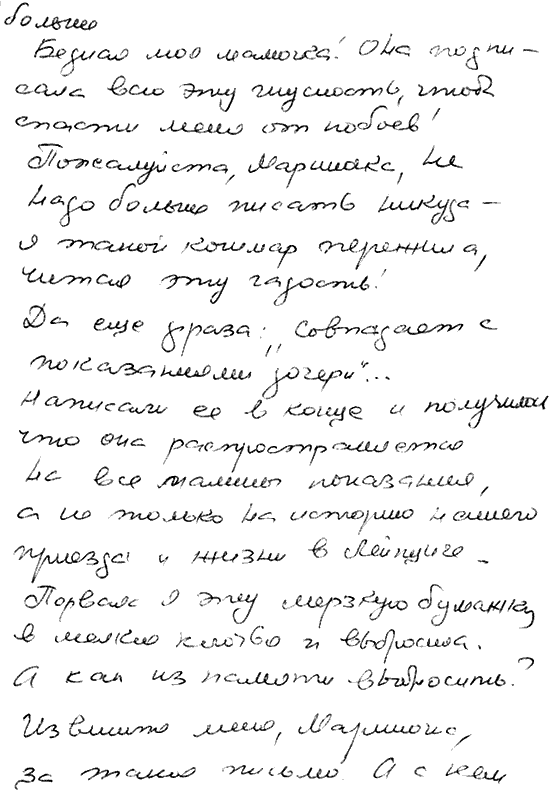 больше
Бедная моя мамочка! Она подпи-
сала всю эту гнусность, чтоб
спасти меня от побоев!
Пожалуйста, Мариночка, не
надо больше писать никуда –
я такой кошмар пережила,
читая эту гадость!
Да еще фраза: „Совпадает с
показаниями дочери"...
Написали ее в конце и получилось
что она распространяется
на все мамины показания,
а не только на историю нашего
приезда и жизни в Лейпциге –
Порвала я эту мерзкую бумажку
в мелкие клочья и выбросила.
А как из памяти выбросить?
Извините меня, Мариночка,
за такое письмо. А с кем